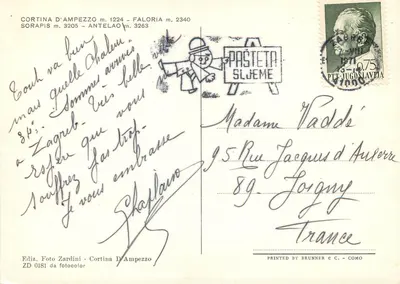 CORTINA D'AMPEZZO m. 1224 - FALORIA m. 2340
SORAPIS m. 3205 - ANTELAO m. 3263
Tout va bien
mais quelle chaleur
38°. Sommes arrivés
à Zagreb. Très belle ville
espère que vous
souffrez pas trop
Je vous embrasse
PAŠTETA
SLJEME
ZAGREB
1971
0,75
PTT JUGOSLAVIJA
Madame Vaddé
95 Rue Jacques d'Auxerre
89. Joigny
France
Ediz. Foto Zardini - Cortina D'Ampezzo
ZD 0281 da fotocolor
PRINTED BY BRUNNER & C. - COMO